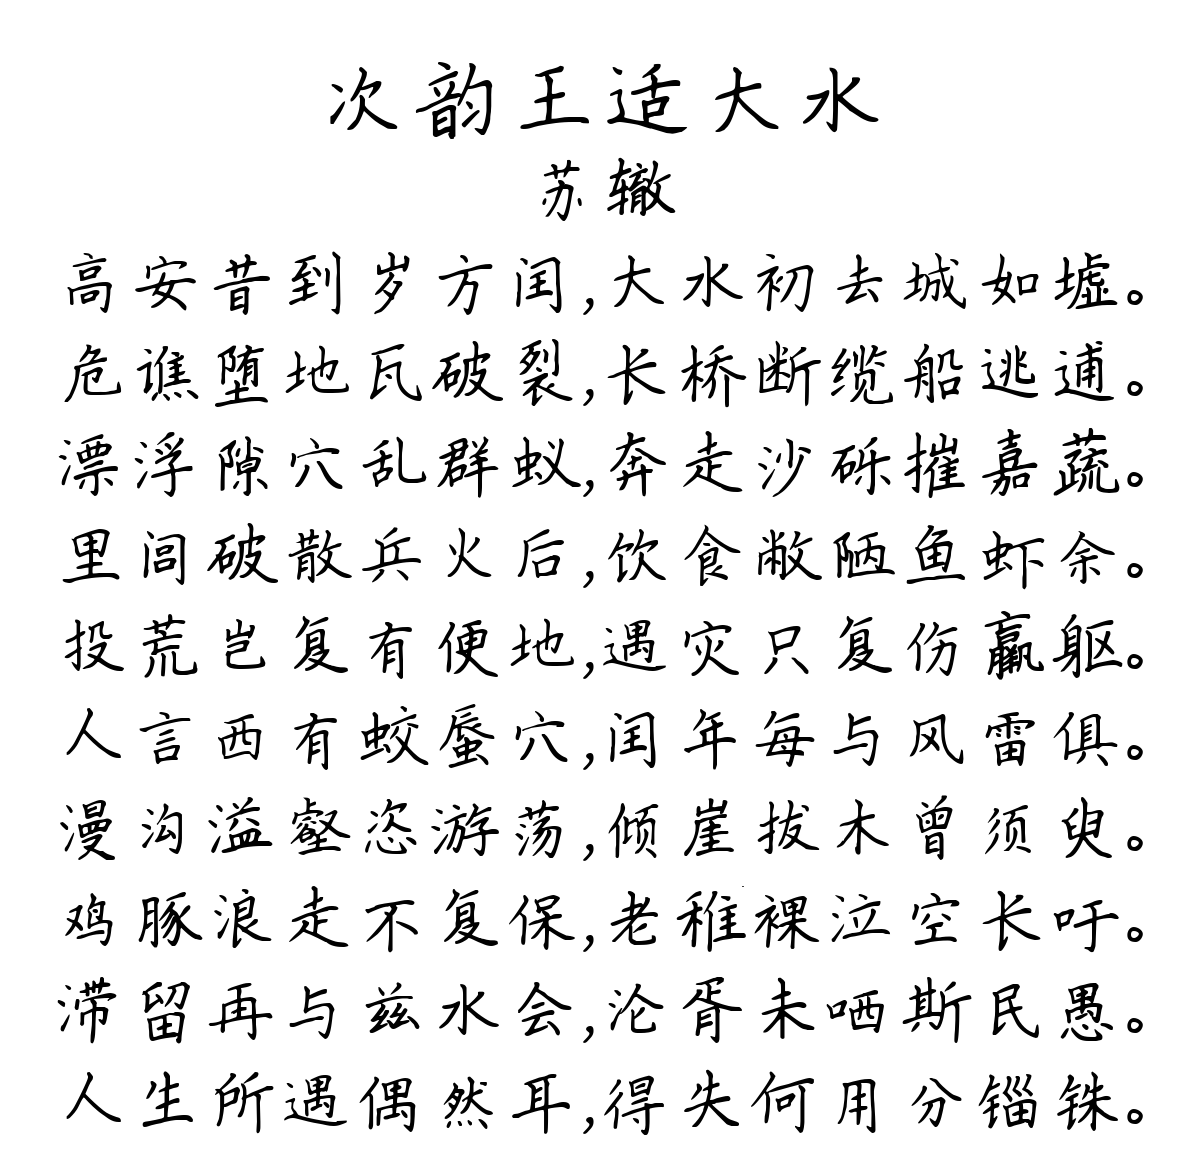 次韵王适大水
苏辙
高安昔到岁方闰,大水初去城如墟。
危谯堕地瓦破裂,长桥断缆船逃逋。
漂浮隙穴乱群蚁,奔走沙砾摧嘉蔬。
里闾破散兵火后,饮食敝陋鱼虾余。
投荒岂复有便地,遇灾只复伤羸躯。
人言西有蛟蜃穴,闰年每与风雷俱。
漫沟溢壑恣游荡,倾崖拔木曾须臾。
鸡豚浪走不复保,老稚裸泣空长吁。
滞留再与兹水会,沦胥未哂斯民愚。
人生所遇偶然耳,得失何用分锱铢。